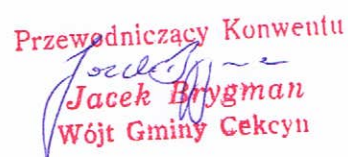 Przewodniczący Konwentu
Jacek Brygman
Wójt Gminy Cekcyn